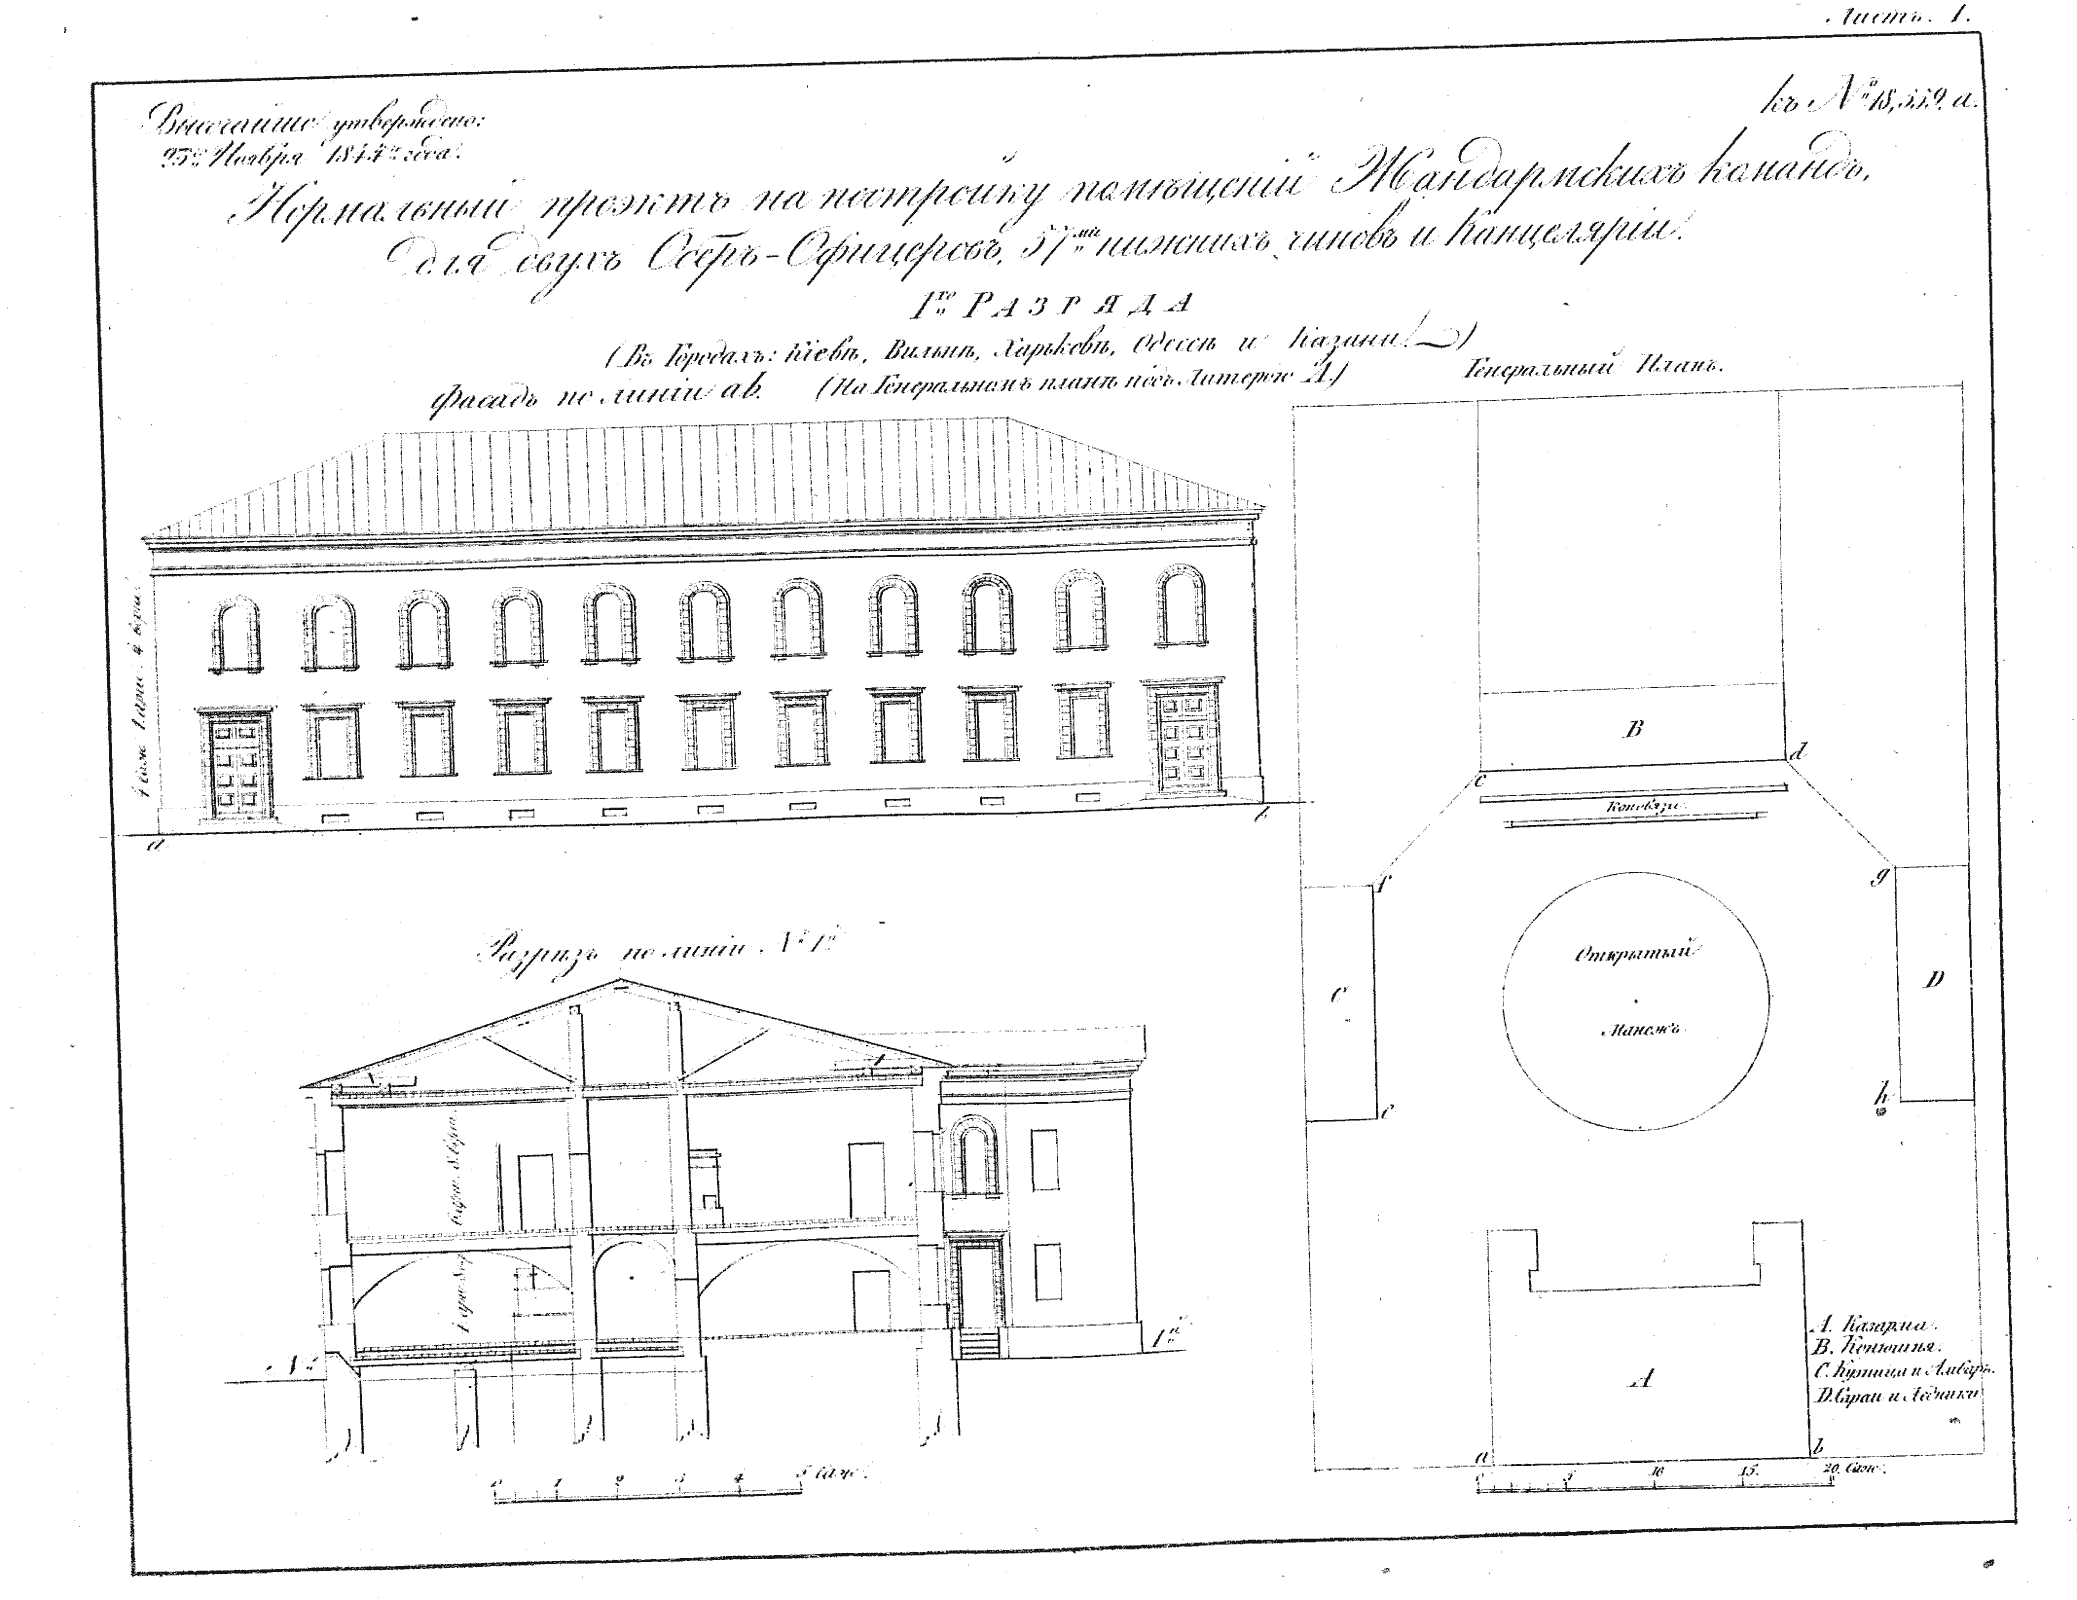 Листъ. 1.
къ № 18,559. а.
Высочайше утверждено:
25го Ноября 1844го года.
Нормальный проэктъ на постройку помѣщеній Жандармскихъ командъ,
для двухъ Оберъ-Офицеровъ, 57ми нижнихъ чиновъ и Канцеляріи.
1го РАЗРЯДА
(Въ Городахъ: Кіевѣ, Вильнѣ, Харьковѣ, Одессѣ и Казани.)
Фасадъ по линіи ab. (На Генеральномъ планѣ подъ Литерою А.)
Генеральный Планъ.
4 саж. 1 арш. 4 верш.
a b
B
c d
Коновязи.
f g
C D
Открытый
Манежъ.
e h
Разрѣзъ по линіи № 1й
6 арш. 8 верш.
№ 1й
A
A. Казарма.
B. Конюшня.
C. Кузница и Амбаръ.
D. Сараи и Ледники
a b
0 1 2 3 4 5 саж.
0 5 10 15. 20. Саж.